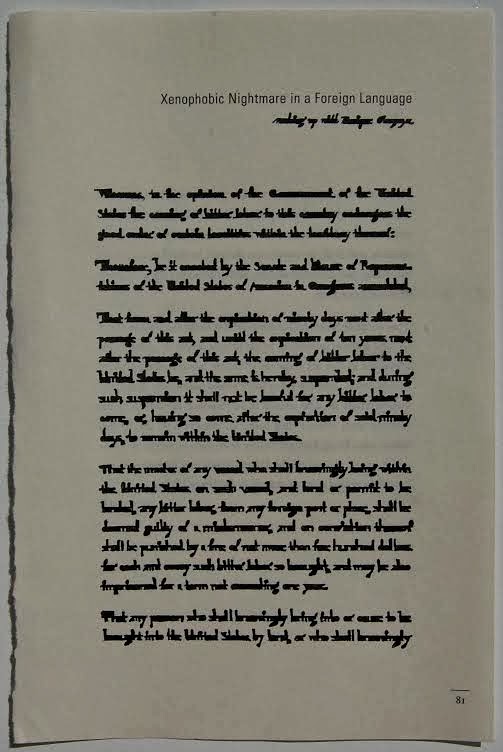 Xenophobic Nightmare in a Foreign Language
up with
Whereas, in the opinion of the Government of the United
States the coming of bitter labor to this country endangers the
good order of certain localities within the territory thereof:
Therefore, be it enacted by the Senate and House of Represen-
tatives of the United States of America in Congress assembled,
That from and after the expiration of ninety days next after the
passage of this act, and until the expiration of ten years next
after the passage of this act, the coming of bitter labor to the
United States be, and the same is hereby, suspended; and during
such suspension it shall not be lawful for any bitter labor to
come, or, having so come after the expiration of said ninety
days, to remain within the United States.
That the master of any vessel who shall knowingly bring within
the United States on such vessel, and land or permit to be
landed, any bitter labor, from any foreign port or place, shall be
deemed guilty of a misdemeanor, and on conviction thereof
shall be punished by a fine of not more than five hundred dollars
for each and every such bitter labor so brought, and may be also
imprisoned for a term not exceeding one year.
That any person who shall knowingly bring into or cause to be
brought into the United States by land, or who shall knowingly
81